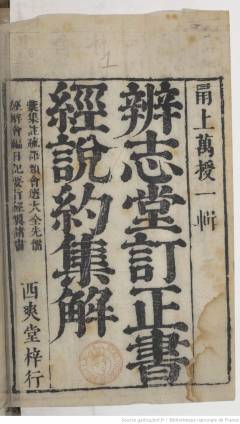 甬上萬授一輯
辨志堂訂正書
經說約集解
彙集註疏語類會選大全先儒
經解會編日記要旨講書
西爽堂梓行
Source gallica.bnf.fr / Bibliothèque nationale de France